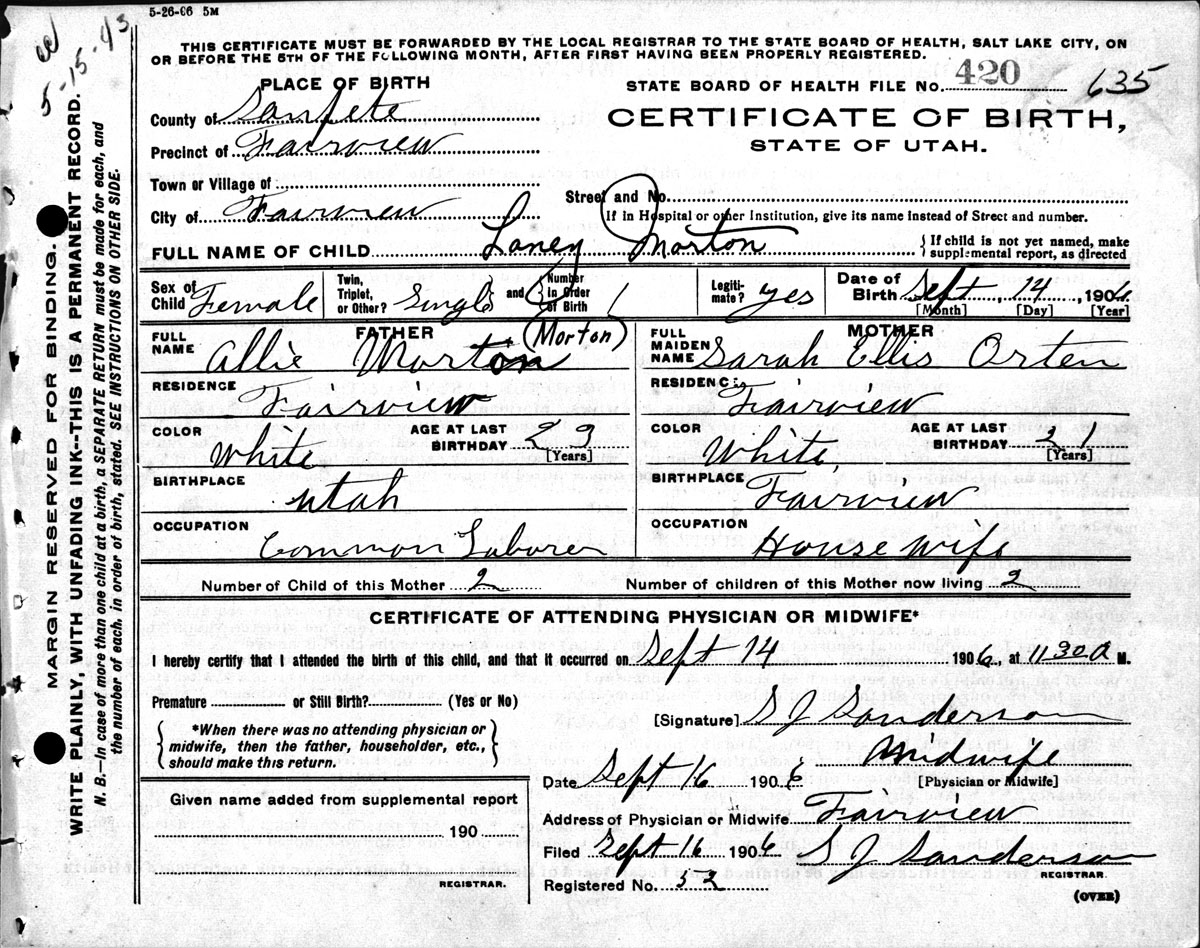 5-26-06 5M
5-15-43
THIS CERTIFICATE MUST BE FORWARDED BY THE LOCAL REGISTRAR TO THE STATE BOARD OF HEALTH, SALT LAKE CITY, ON
OR BEFORE THE 5TH OF THE FOLLOWING MONTH, AFTER FIRST HAVING BEEN PROPERLY REGISTERED.
PLACE OF BIRTH
STATE BOARD OF HEALTH FILE No. 420 635
County of Sanpete
CERTIFICATE OF BIRTH,
Precinct of Fairview
STATE OF UTAH.
Town or Village of
Street and No.
City of Fairview
If in Hospital or other Institution, give its name instead of Street and number.
FULL NAME OF CHILD Laney Morton
{If child is not yet named, make supplemental report, as directed
Sex of Child Female
Twin, Triplet, or Other? Single and Number in Order of Birth 1
Legitimate? yes
Date of Birth Sept 14, 1906
[Month] [Day] [Year]
FATHER
FULL NAME Allie Morton (Morton)
RESIDENCE Fairview
COLOR White
AGE AT LAST BIRTHDAY 23 [Years]
BIRTHPLACE Utah
OCCUPATION Common Laborer
MOTHER
FULL MAIDEN NAME Sarah Ellis Orten
RESIDENCE Fairview
COLOR White,
AGE AT LAST BIRTHDAY 21 [Years]
BIRTHPLACE Fairview
OCCUPATION House wife
Number of Child of this Mother 2
Number of children of this Mother now living 2
CERTIFICATE OF ATTENDING PHYSICIAN OR MIDWIFE*
I hereby certify that I attended the birth of this child, and that it occurred on Sept 14 1906, at 11 30 A M.
Premature or Still Birth? (Yes or No)
{*When there was no attending physician or midwife, then the father, householder, etc., should make this return.}
[Signature] S J Sanderson
Midwife
[Physician or Midwife]
Date Sept 16 1906
Given name added from supplemental report
190
REGISTRAR.
Address of Physician or Midwife Fairview
Filed Sept 16 1906 S J Sanderson
REGISTRAR.
Registered No. 52
(OVER)
MARGIN RESERVED FOR BINDING.
WRITE PLAINLY, WITH UNFADING INK--THIS IS A PERMANENT RECORD.
N. B.—In case of more than one child at a birth, a SEPARATE RETURN must be made for each, and
the number of each, in order of birth, stated. SEE INSTRUCTIONS ON OTHER SIDE.